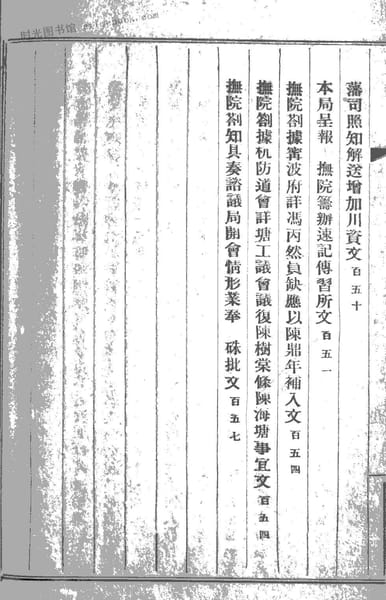 时光图书馆
藩司照知解送增加川資文 百五十
本局呈報 撫院籌辦速記傳習所文 百五一
撫院劄據寗波府詳馮丙然員缺應以陳鼎年補入文 百五四
撫院劄據杭防道會詳塘工議會議復陳樹棠條陳海塘事宜文 百五四
撫院劄知具奏諮議局開會情形業奉 硃批文 百五七